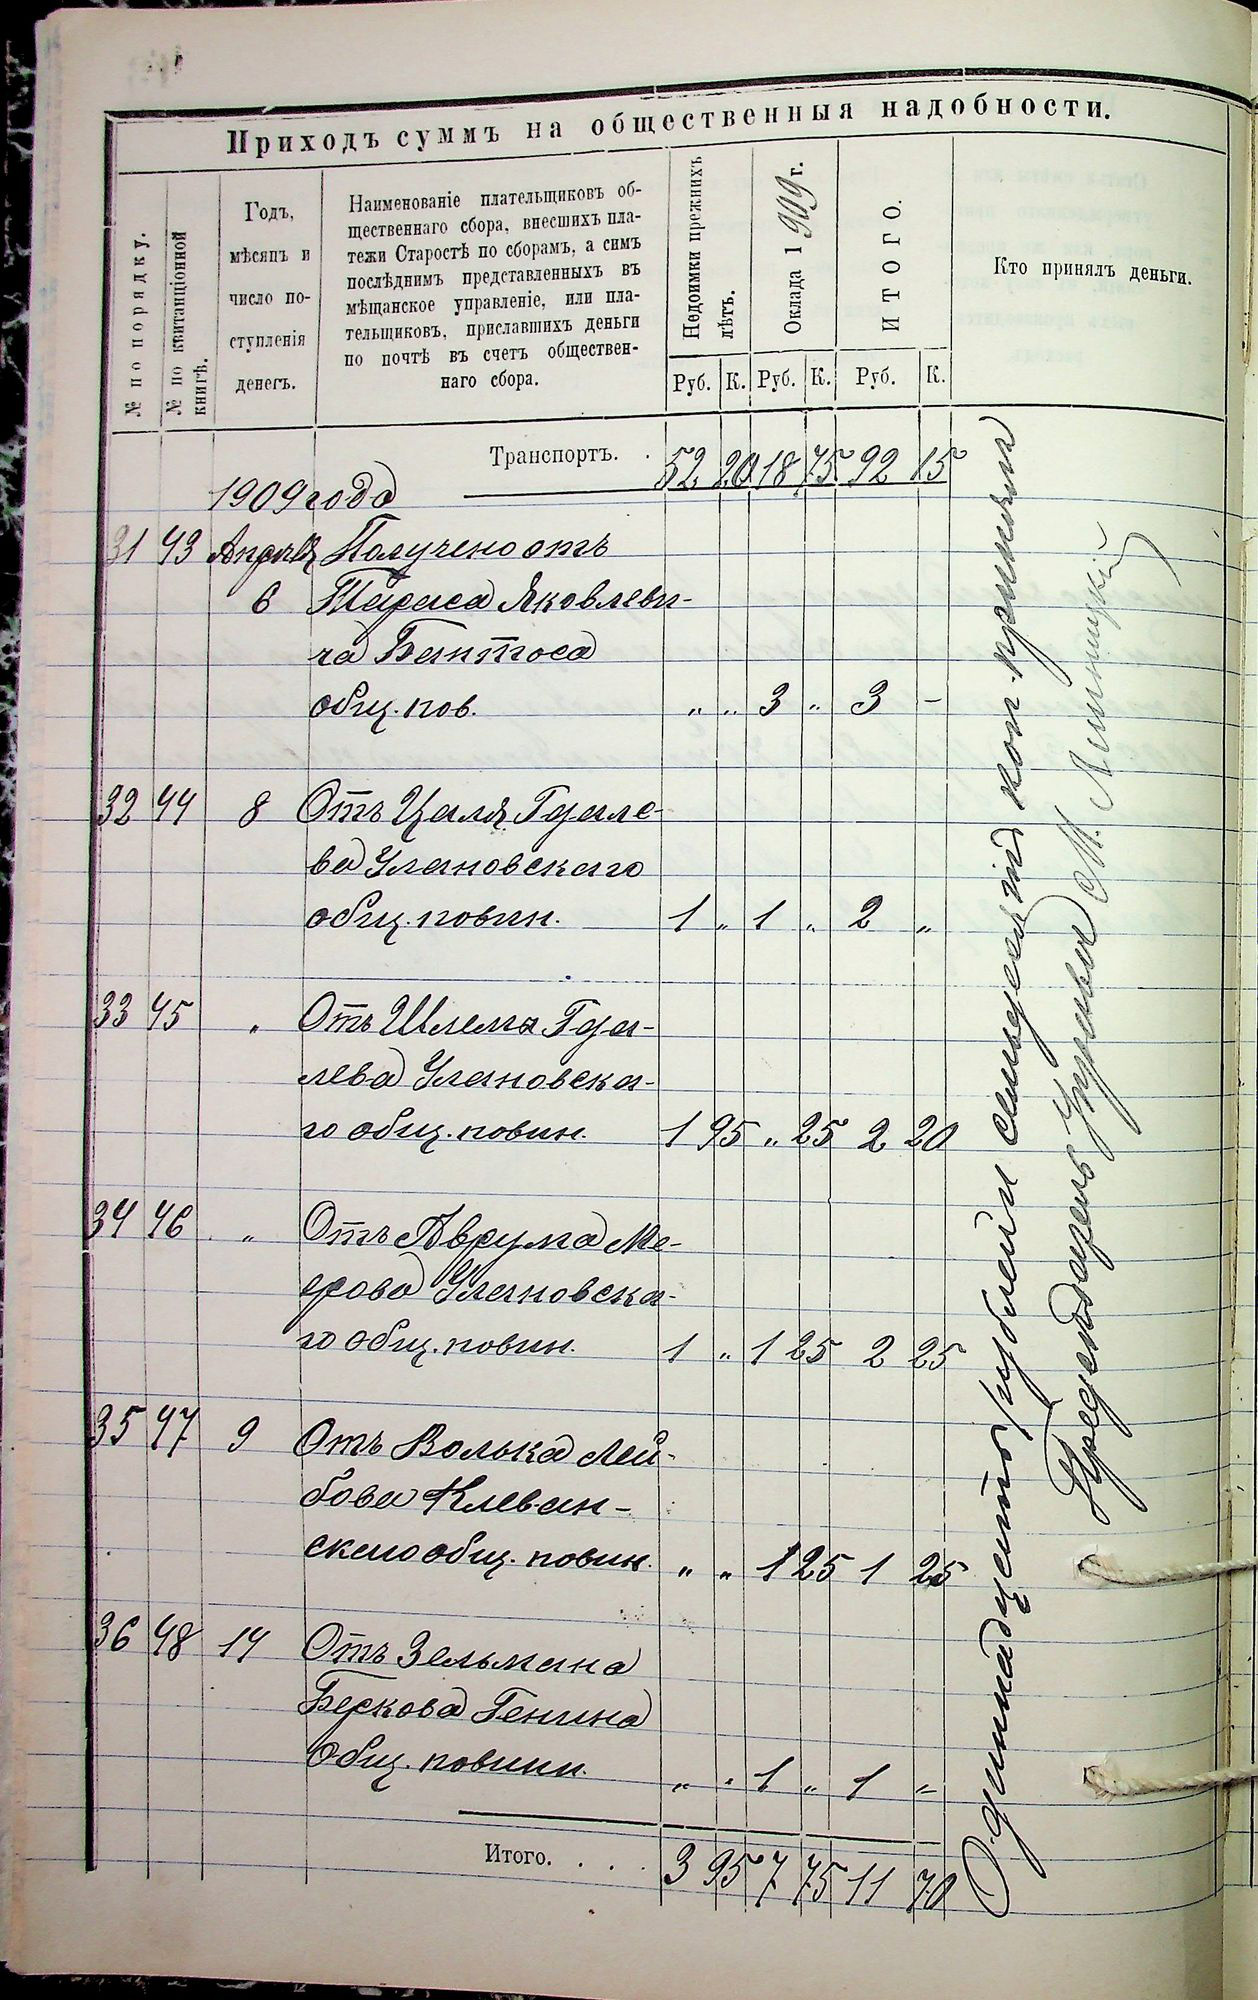 Приходъ суммъ на общественныя надобности.
№ по порядку.
№ по квитанціонной
книгѣ.
Годъ,
мѣсяцъ и
число по-
ступленія
денегъ.
Наименованіе плательщиковъ об-
щественнаго сбора, внесшихъ пла-
тежи Старостѣ по сборамъ, а симъ
послѣднимъ представленныхъ въ
мѣщанское управленіе, или пла-
тельщиковъ, приславшихъ деньги
по почтѣ въ счетъ обществен-
наго сбора.
Недоимки прежнихъ
лѣтъ.
Оклада 1909 г.
ИТОГО.
Кто принялъ деньги.
Руб. К. Руб. К. Руб. К.
Транспортъ. . 52 20 18 75 92 15
1909 года
31 43 Апрѣля Получено отъ
6 Тараса Яковлеви-
ча Бантоса
общ. пов. „ „ 3 „ 3 -
32 44 8 Отъ Цаля Гдале-
ва Улановскаго
общ. повин. 1 „ 1 „ 2 „
33 45 „ Отъ Шлема Гда-
лева Улановска-
го общ. повин. 1 95 „ 25 2 20
34 46 „ Отъ Аврума Ме-
ерова Улановска-
го общ. повин. 1 „ 1 25 2 25
35 47 9 Отъ Волька Лей-
бова Клеван-
скаго общ. повин. „ „ 1 25 1 25
36 48 14 Отъ Зельмана
Беркова Генина
Общ. повинн. „ „ 1 „ 1 „
Итого. . . . 3 95 7 75 11 70
Одиннадцать рублей семьдесятъ коп. принялъ
Предсѣдатель Управы М.